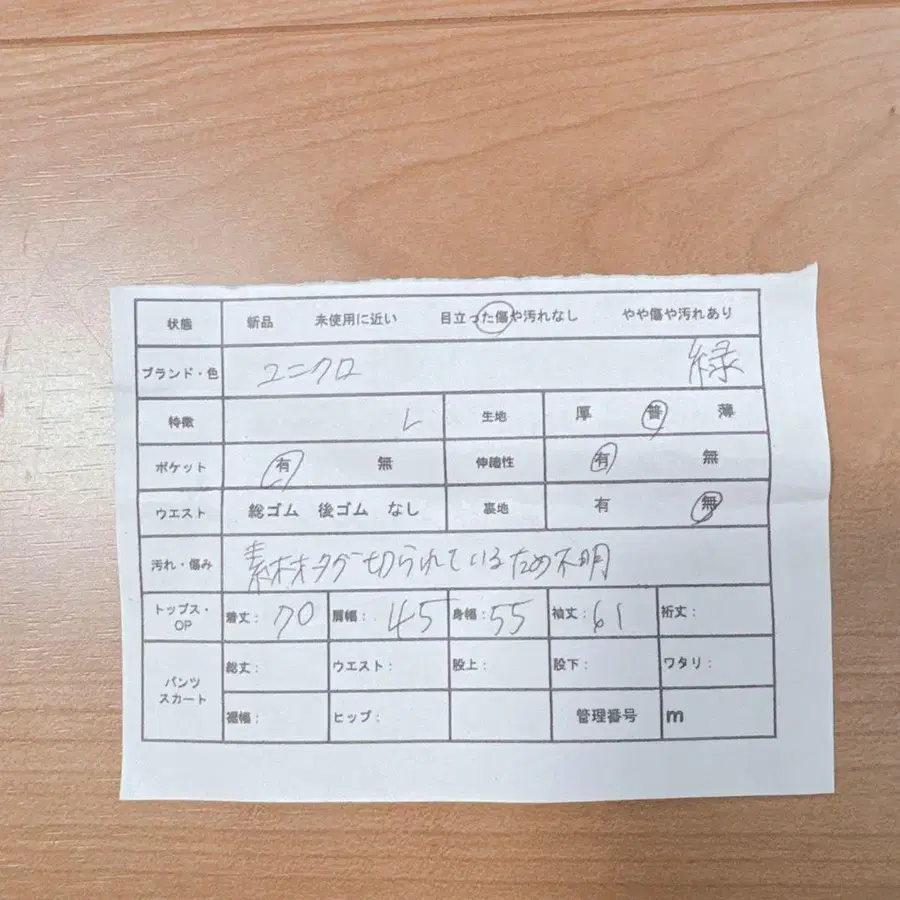 状態 新品 未使用に近い 目立った傷や汚れなし やや傷や汚れあり
ブランド・色 ユニクロ 緑
特徴 L 生地 厚 普 薄
ポケット 有 無 伸縮性 有 無
ウエスト 総ゴム 後ゴム なし 裏地 有 無
汚れ・傷み 素材タグ切られているため不明
トップス・OP 着丈: 70 肩幅: 45 身幅: 55 袖丈: 61 裄丈:
パンツ スカート 総丈: ウエスト: 股上: 股下: ワタリ:
裾幅: ヒップ: 管理番号 m